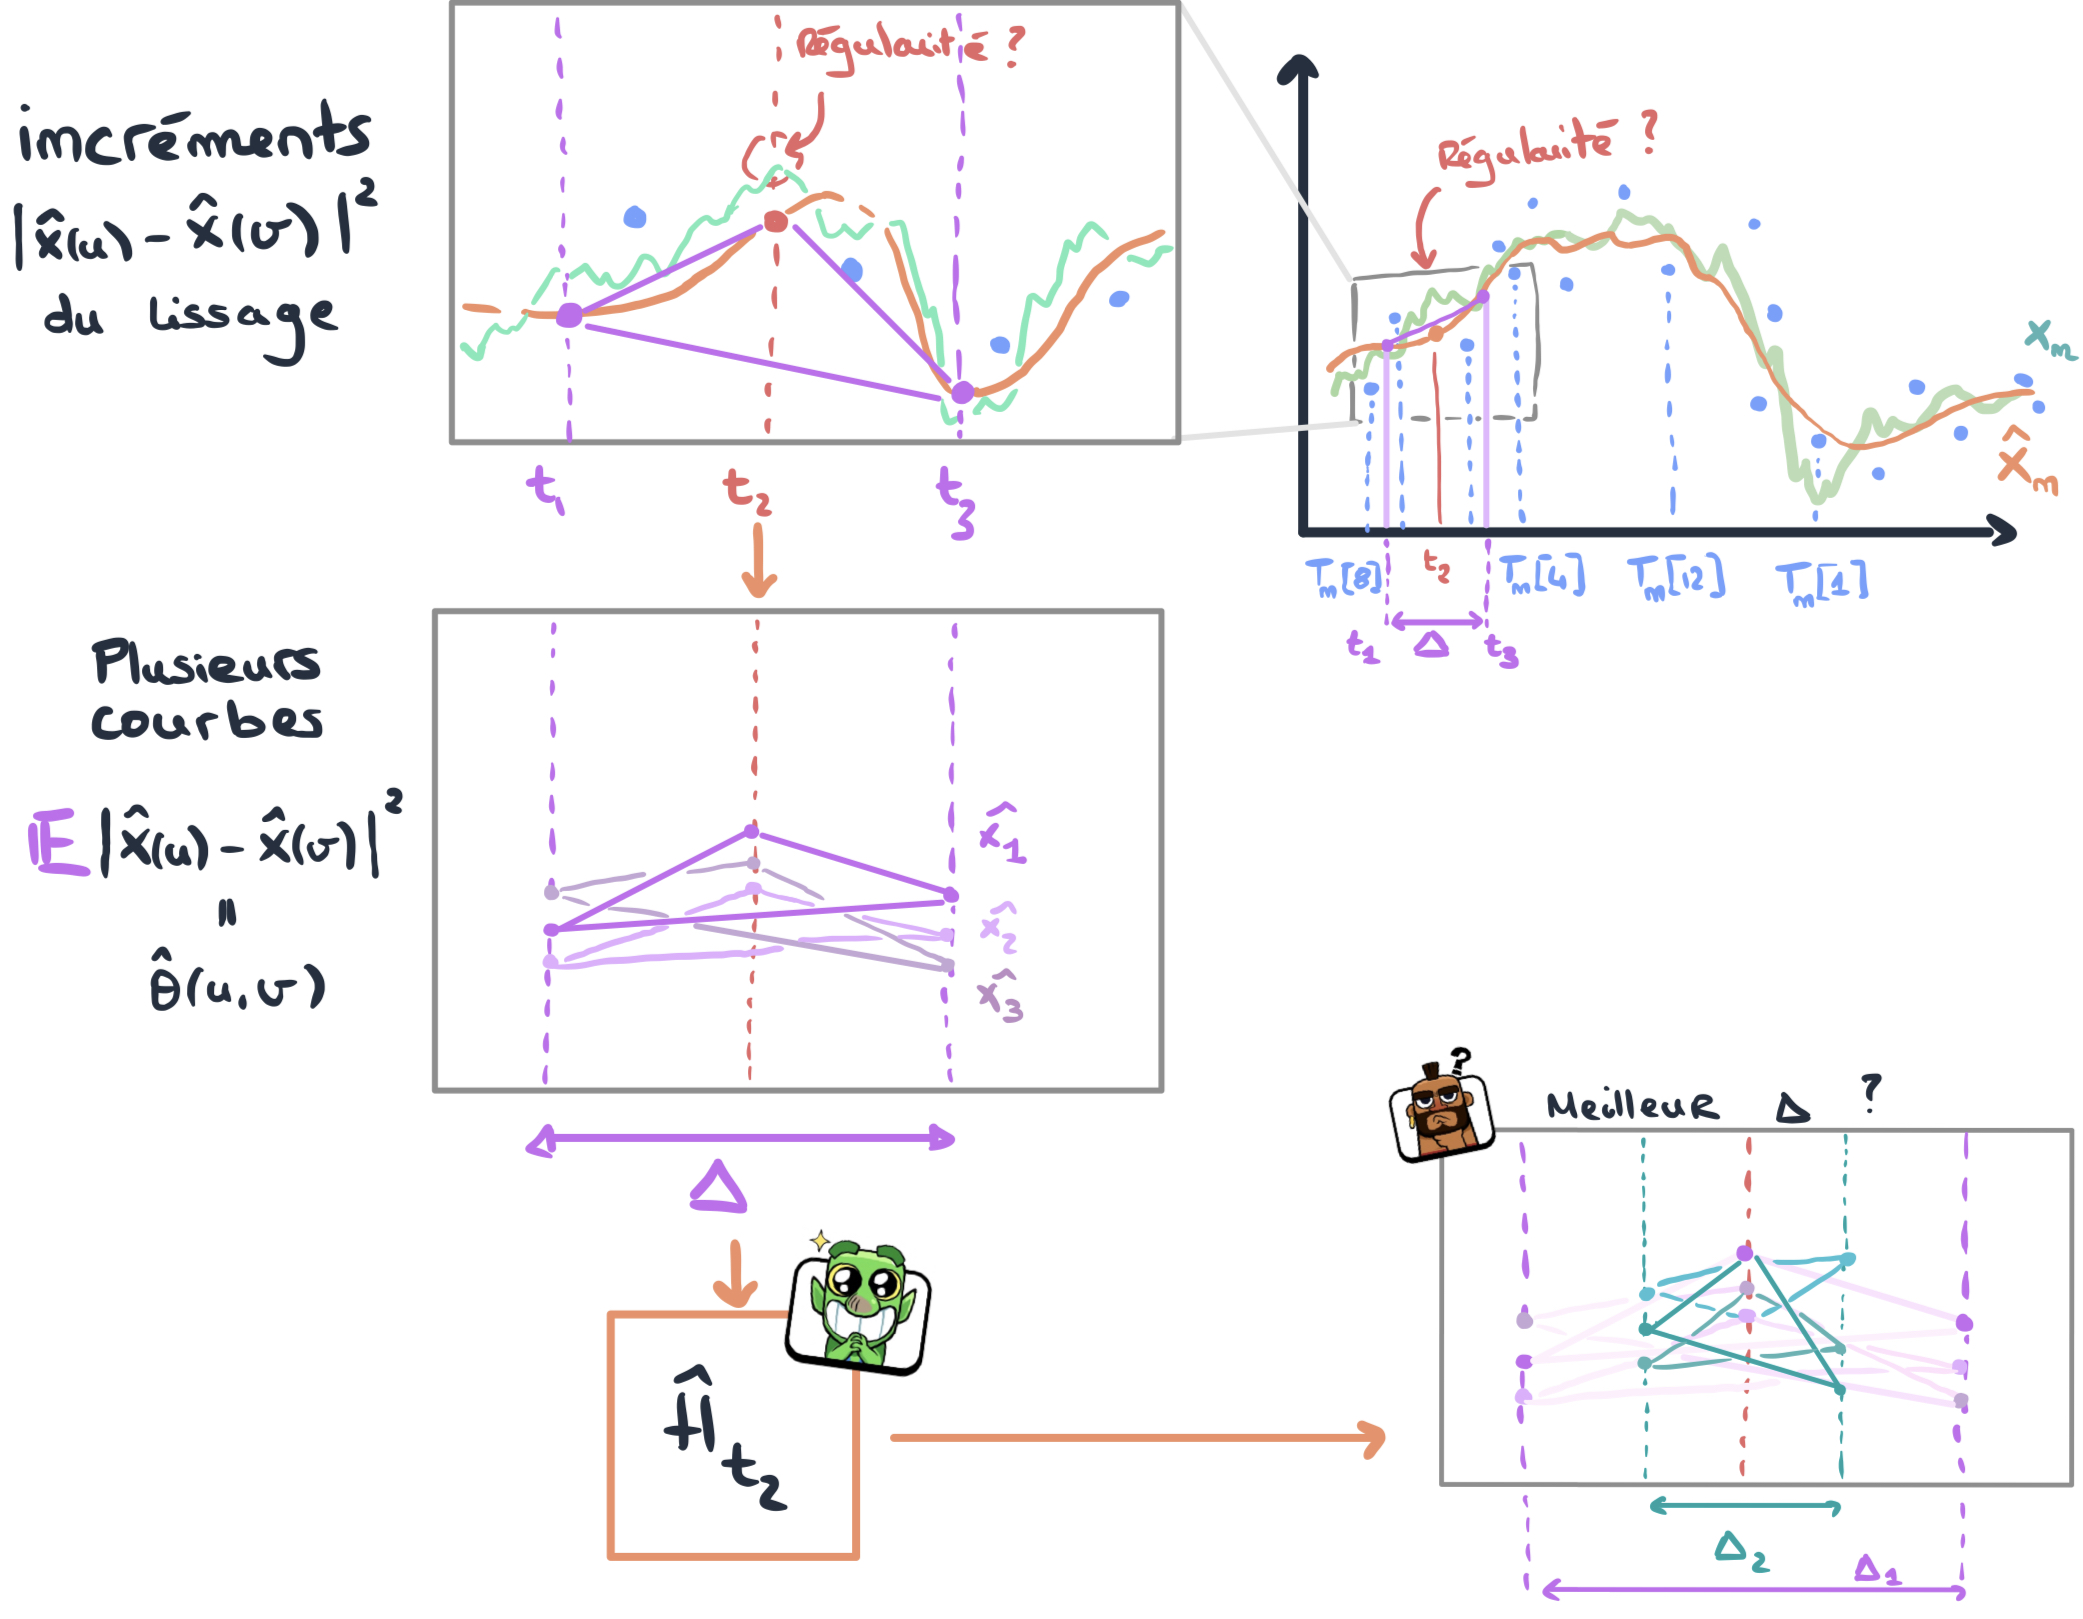 incréments
|x̂(u) - x̂(v)|²
du lissage
Régularité ?
t₁ t₂ t₃
Régularité ?
Xₘ
X̂ₘ
Tₘ[8] t₂ Tₘ[4] Tₘ[12] Tₘ[1]
t₁ Δ t₃
Plusieurs
courbes
𝔼|x̂(u) - x̂(v)|²
=
θ̂(u,v)
x̂₁
x̂₂
x̂₃
Δ
Ĥt₂
?
Meilleur Δ ?
Δ₂
Δ₁